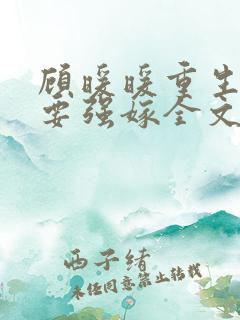 顾暖暖重生
要强嫁全文
西子绪
未经同意禁止转载